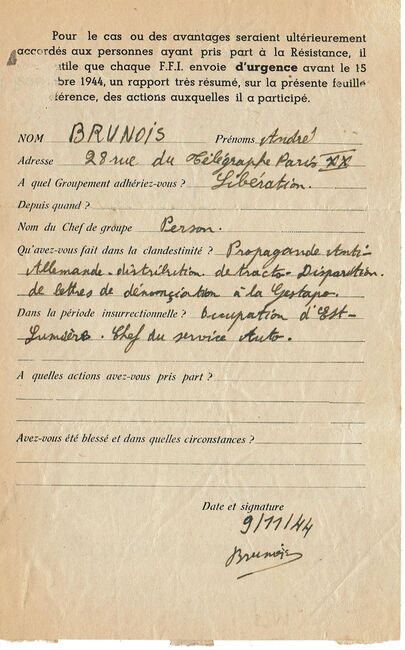 Pour le cas ou des avantages seraient ultérieurement
accordés aux personnes ayant pris part à la Résistance, il
utile que chaque F.F.I. envoie d'urgence avant le 15
bre 1944, un rapport très résumé, sur la présente feuille
férence, des actions auxquelles il a participé.
NOM BRUNOIS Prénoms André
Adresse 28 rue du Télégraphe Paris XX
A quel Groupement adhériez-vous ? Libération.
Depuis quand ?
Nom du Chef de groupe Person.
Qu'avez-vous fait dans la clandestinité ? Propagande Anti-
Allemande - distribution de tracts - Disparition
de lettres de dénonciation à la Gestapo.
Dans la période insurrectionnelle ? Occupation d'Est-
Lumière. Chef du service Auto.
A quelles actions avez-vous pris part ?
Avez-vous été blessé et dans quelles circonstances ?
Date et signature
9/11/44
Brunois